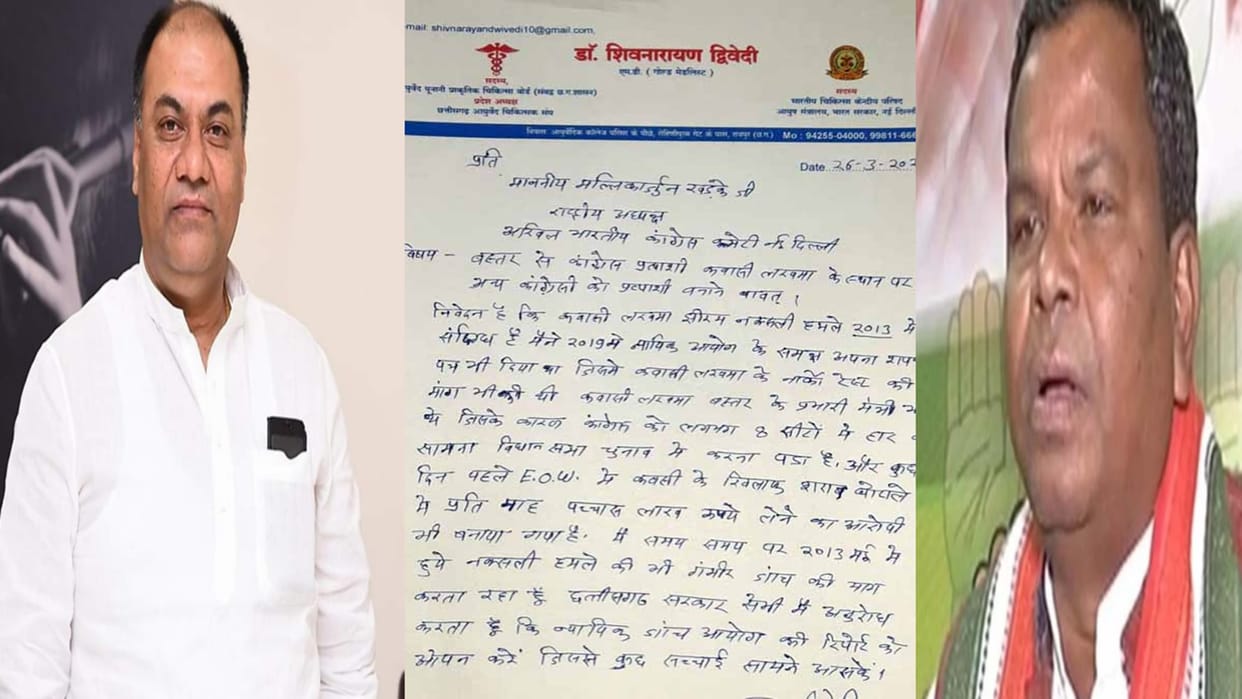 email: shivnarayandwivedi10@gmail.com,
डॉ. शिवनारायण द्विवेदी
एम.डी. ( गोल्ड मेडलिस्ट )
सदस्य,
युर्वेद यूनानी प्राकृतिक चिकित्सा बोर्ड (संबद्ध छ.ग.शासन)
प्रदेश अध्यक्ष
छत्तीसगढ़ आयुर्वेद चिकित्सक संघ
सदस्य
भारतीय चिकित्सा केन्द्रीय परिषद
आयुष मंत्रालय, भारत सरकार, नई दिल्ली
निवास आयुर्वेदिक कॉलेज पुलिस के पीछे, रोहिणीपुरम गेट के पास, रायपुर (छ.ग.) Mo : 94255-04000, 99811-666
Date 26-3-202
प्रति
माननीय मल्लिकार्जुन खड़के जी
राष्ट्रीय अध्यक्ष
अखिल भारतीय कांग्रेस कमेटी नई दिल्ली
विषय - बस्तर से कांग्रेस प्रत्याशी कवासी लखमा के स्थान पर
अन्य कांग्रेसी को प्रत्याशी बनाने बाबत् ।
निवेदन है कि कवासी लखमा झीरम नक्सली हमले 2013 में
संदिग्ध है मैंने 2019 में न्यायिक आयोग के समक्ष अपना शपथ
पत्र भी दिया था जिसमें कवासी लखमा के नार्को टेस्ट की
मांग भी की थी कवासी लखमा बस्तर के प्रभारी मंत्री भी
थे जिसके कारण कांग्रेस को लगभग 8 सीटों में हार का
सामना विधानसभा चुनाव में करना पडा है, और कुछ
दिन पहले E.O.W. में कवासी के खिलाफ शराब घोटाले
में प्रति माह पच्चास लाख रुपये लेने का आरोपी
भी बनाया गया है. मैं समय समय पर 2013 मई में
हुये नक्सली हमले की भी गंभीर जांच की मांग
करता रहा हूँ छत्तीसगढ सरकार से भी मैं अनुरोध
करता हूँ कि न्यायिक जांच आयोग की रिपोर्ट को
ओपन करें जिससे कुछ सच्चाई सामने आ सके।